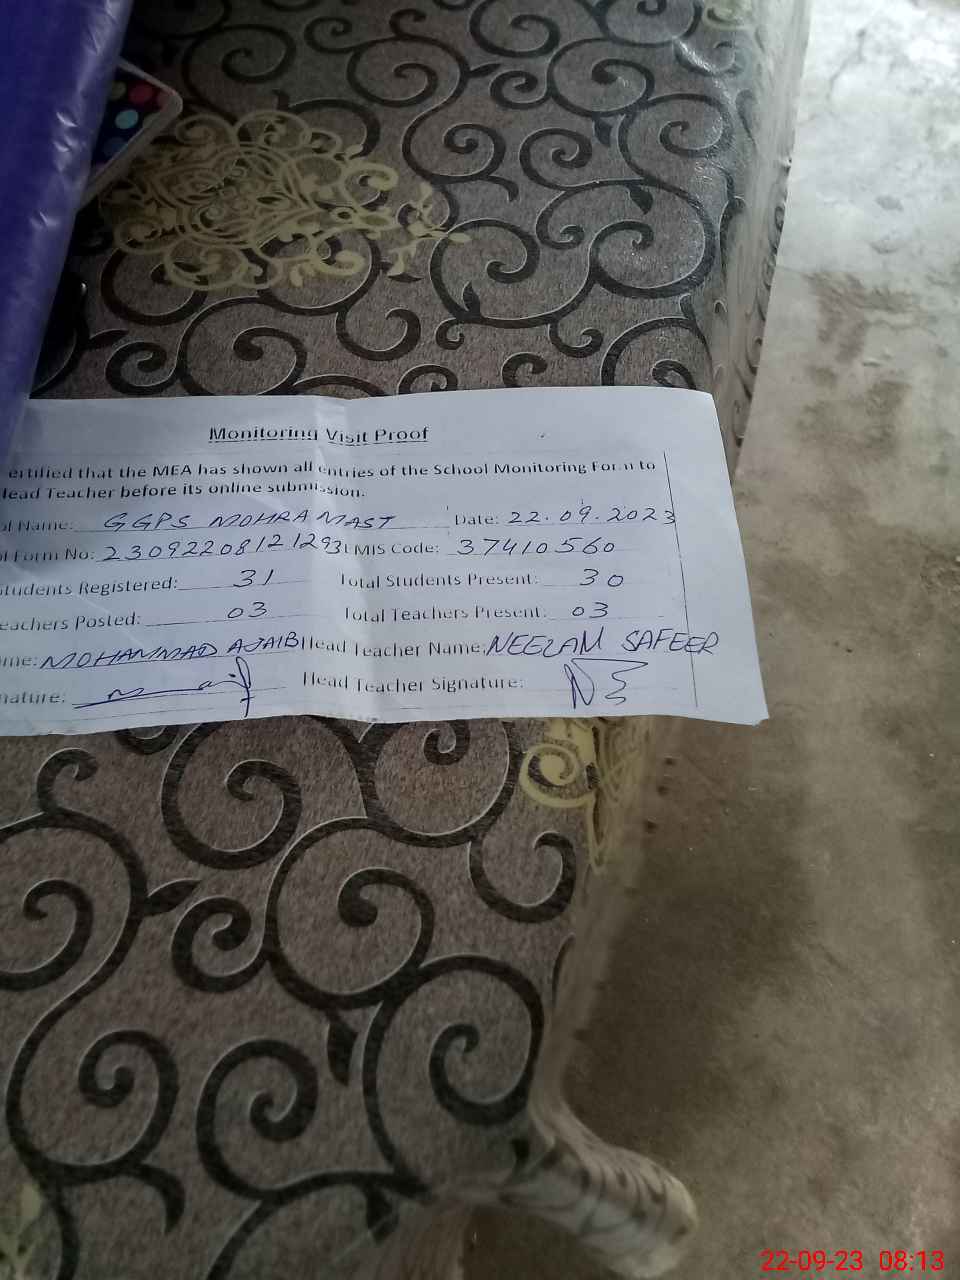 Monitoring Visit Proof
ertified that the MEA has shown all entries of the School Monitoring Form to
lead Teacher before its online submission.
ol Name: GGPS MOHRA MAST Date: 22.09.2023
ol Form No: 23092208121293 EMIS Code: 37410560
Students Registered: 31 Total Students Present: 30
eachers Posted: 03 Total Teachers Present: 03
me: MOHAMMAD AJAIB Head Teacher Name: NEELAM SAFEER
nature: Head Teacher Signature:
22-09-23 08:13